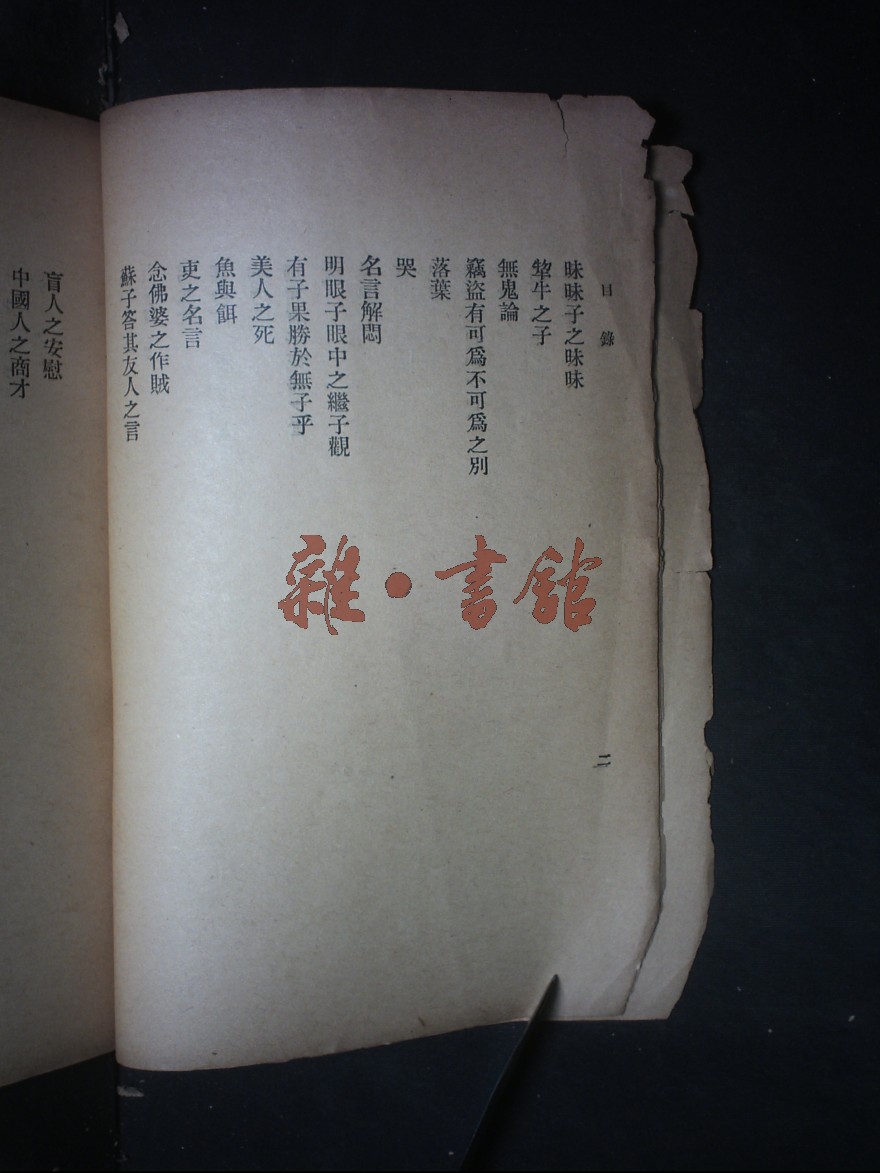 目錄
昧昧子之昧昧
犂牛之子
無鬼論
竊盜有可爲不可爲之別
落葉
哭
名言解悶
明眼子眼中之繼子觀
有子果勝於無子乎
美人之死
魚與餌
吏之名言
念佛婆之作賊
蘇子答其友人之言
二
盲人之安慰
中國人之商才
雜·書館